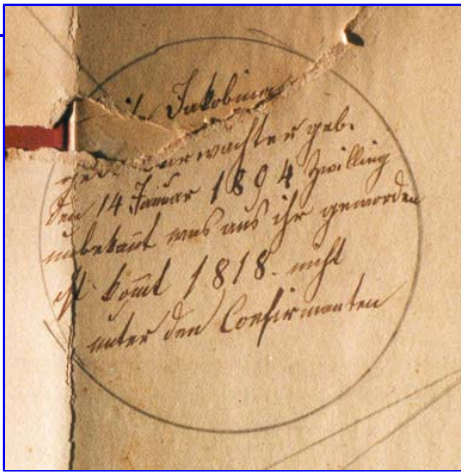 Jakobina
wachter geb.
den 14 Januar 1804 Zwilling
unbekannt was aus ihr geworden
ist kommt 1818. nicht
unter den Confirmanten